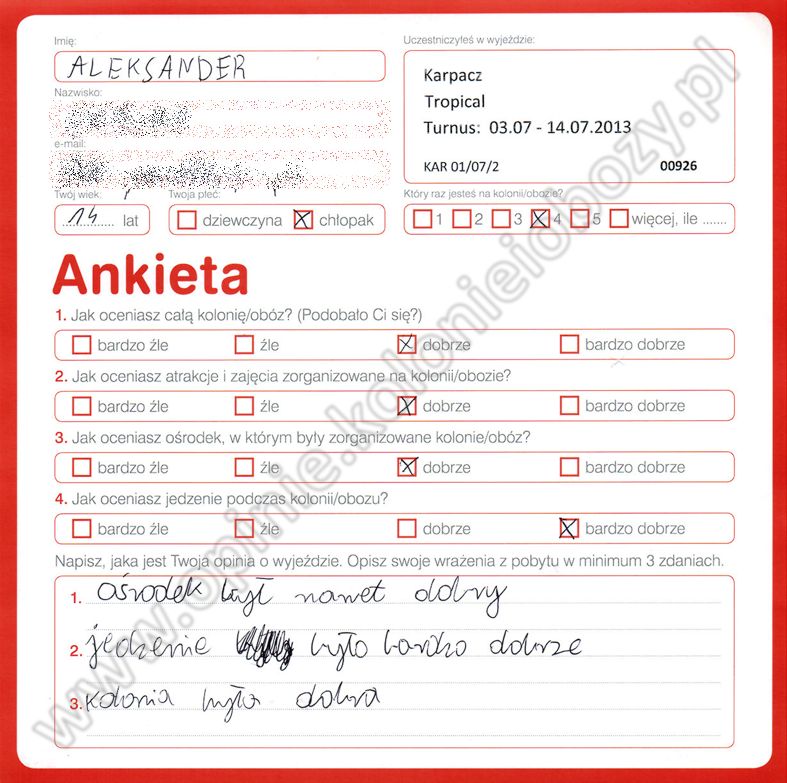 Imię:
Uczestniczyłeś w wyjeździe:
ALEKSANDER
Karpacz
Tropical
Turnus: 03.07 - 14.07.2013
KAR 01/07/2 00926
Nazwisko:
e-mail:
Twój wiek: Twoja płeć: Który raz jesteś na kolonii/obozie?
14 lat dziewczyna chłopak 1 2 3 4 5 więcej, ile .......
Ankieta
1. Jak oceniasz całą kolonię/obóz? (Podobało Ci się?)
bardzo źle źle dobrze bardzo dobrze
2. Jak oceniasz atrakcje i zajęcia zorganizowane na kolonii/obozie?
bardzo źle źle dobrze bardzo dobrze
3. Jak oceniasz ośrodek, w którym były zorganizowane kolonie/obóz?
bardzo źle źle dobrze bardzo dobrze
4. Jak oceniasz jedzenie podczas kolonii/obozu?
bardzo źle źle dobrze bardzo dobrze
Napisz, jaka jest Twoja opinia o wyjeździe. Opisz swoje wrażenia z pobytu w minimum 3 zdaniach.
1. Ośrodek był nawet dobry
2. jedzenie było bardzo dobrze
3. kolonia była dobra
www.opinie.kolonieiobozy.pl